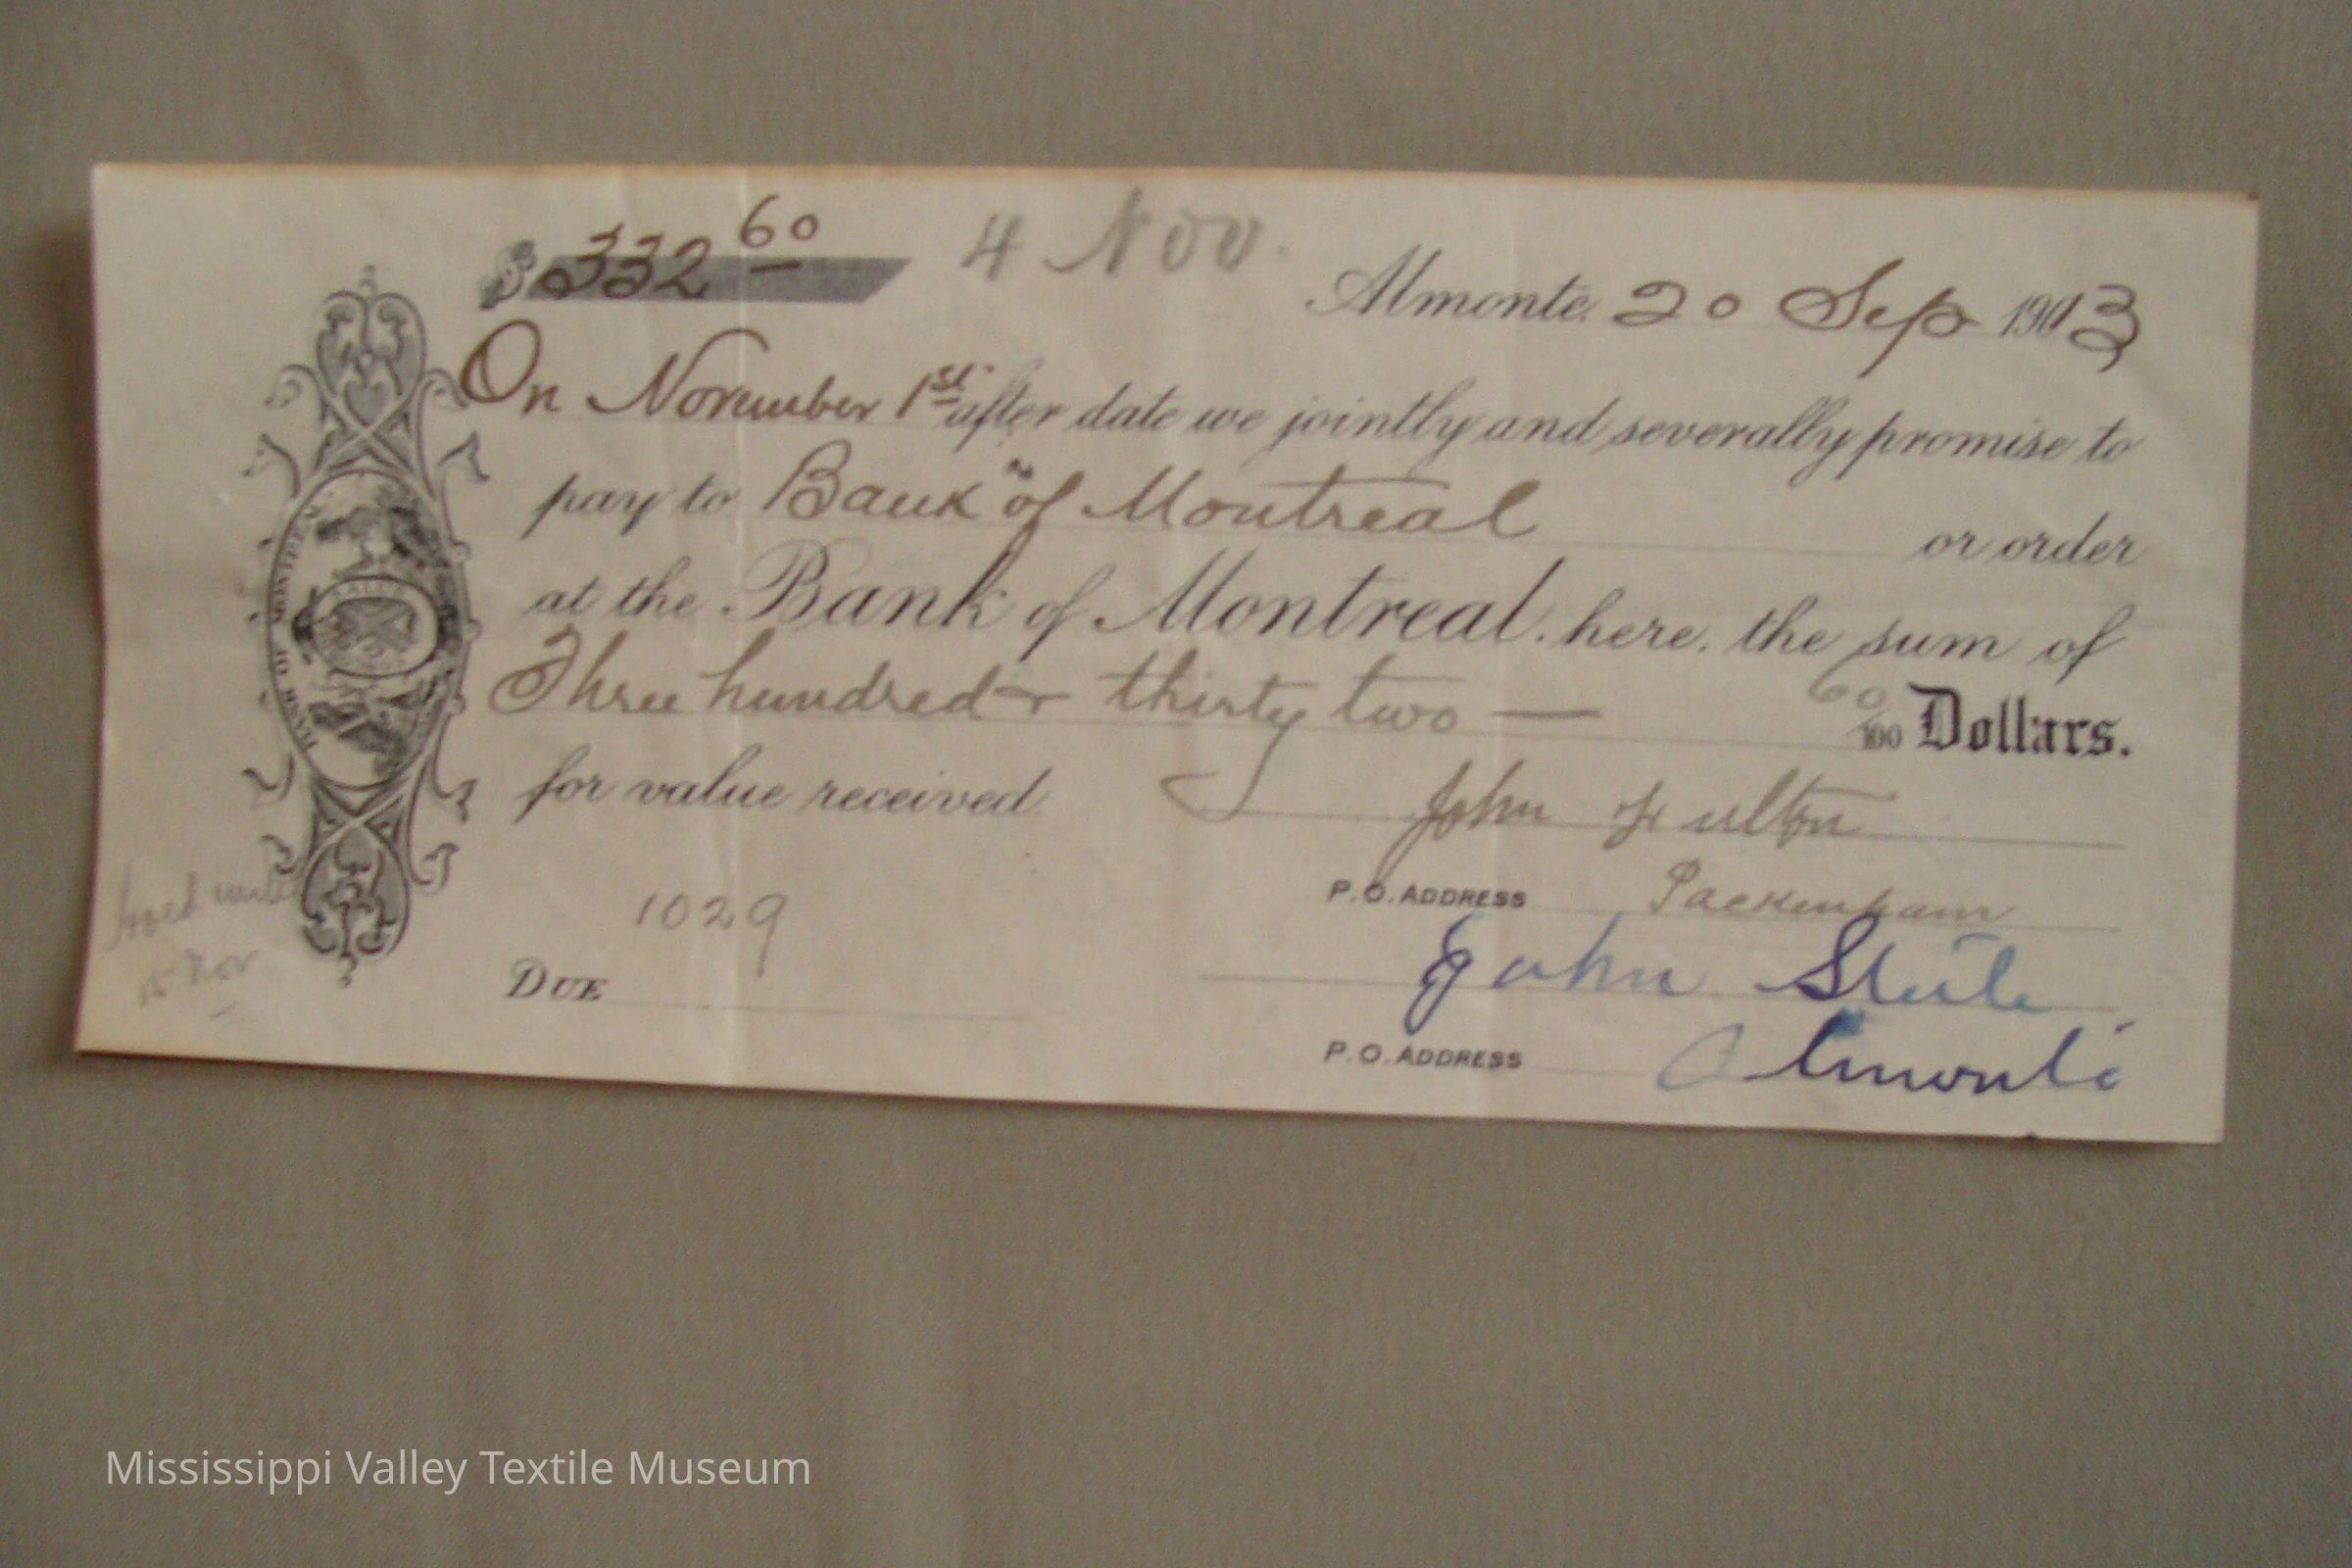 $332 60
4 Nov.
Almonte. 20 Sep 1913
On November 1st after date we jointly and severally promise to
pay to Bank of Montreal or order
at the Bank of Montreal. here. the sum of
Three hundred + thirty two — 60/100 Dollars.
for value received
John Fulton
P.O. ADDRESS Packenham
1029
John Steele
DUE
15 Nov
P.O. ADDRESS Almonte
BANK OF MONTREAL
Mississippi Valley Textile Museum